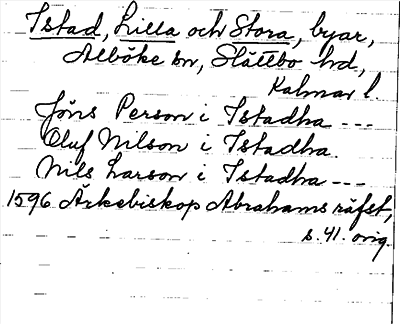 Istad, Lilla och Stora, byar,
Alböke sn, Slättbo hd,
Kalmar l.
Jöns Person i Istadha ---
Oluf Nilson i Istadha.
Nils Larson i Istadha ---
1596 Ärkebiskop Abrahams räfst,
s. 41. orig.